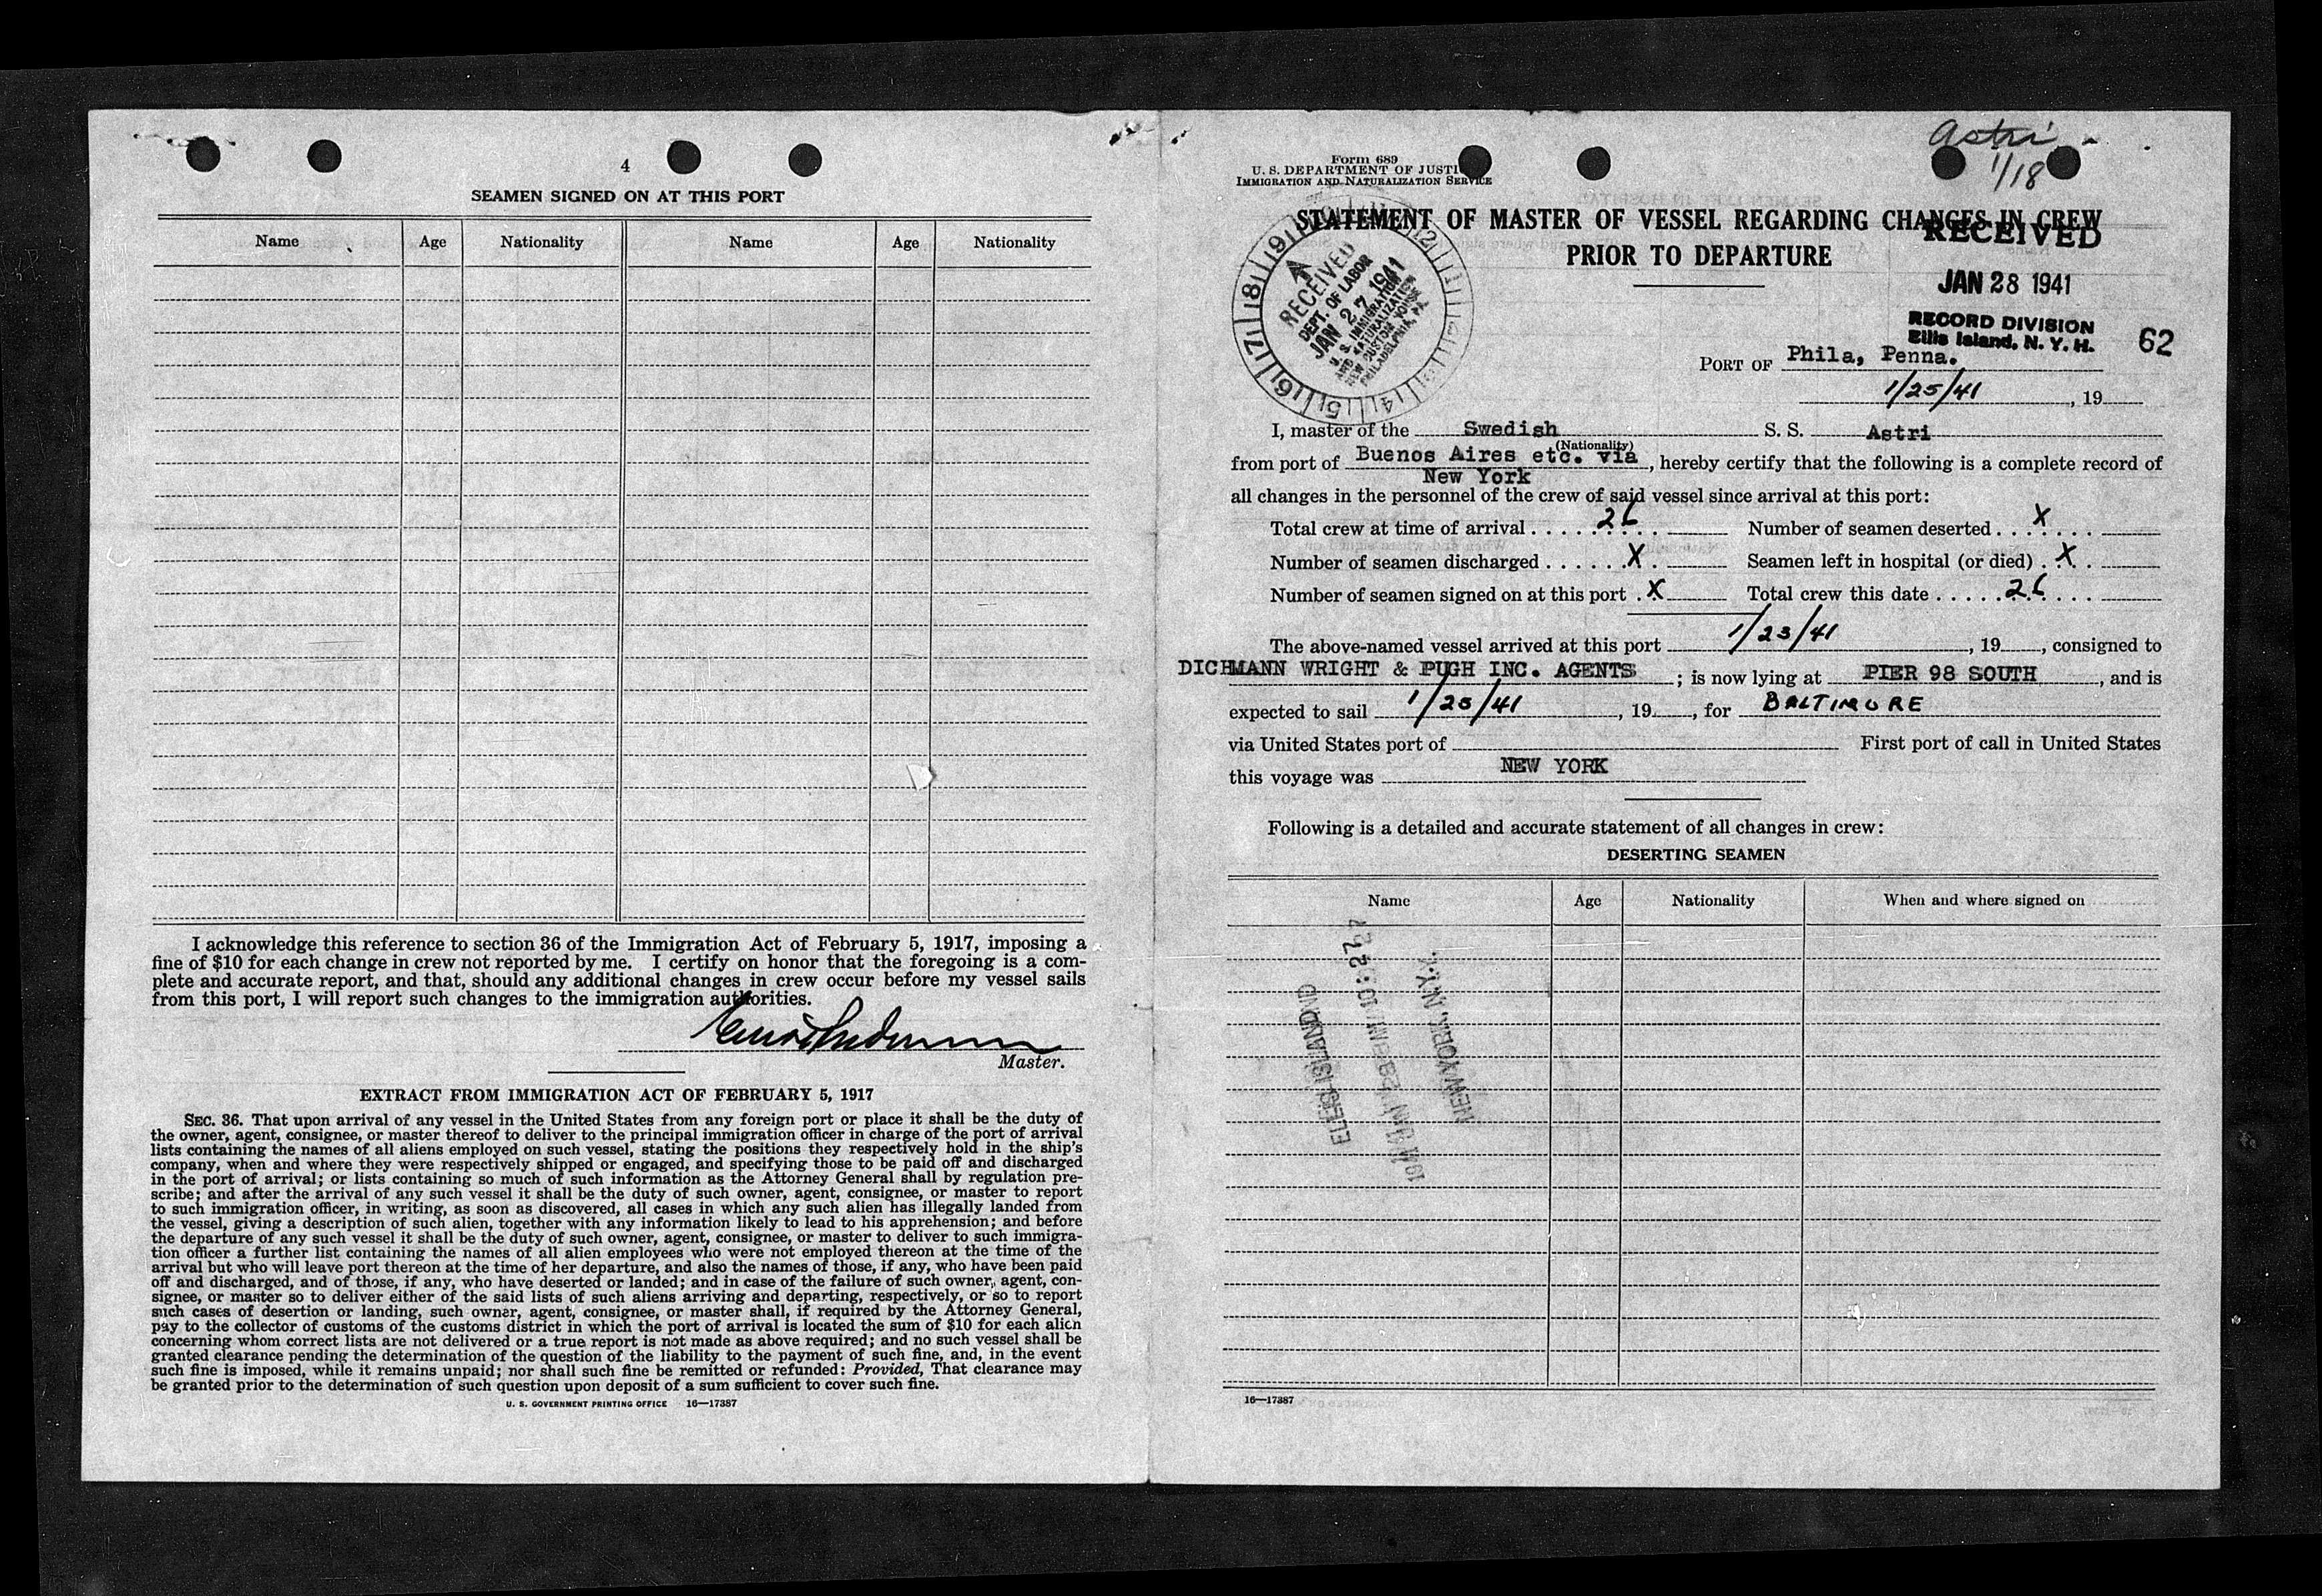 4
SEAMEN SIGNED ON AT THIS PORT
Name Age Nationality Name Age Nationality
I acknowledge this reference to section 36 of the Immigration Act of February 5, 1917, imposing a
fine of $10 for each change in crew not reported by me. I certify on honor that the foregoing is a com-
plete and accurate report, and that, should any additional changes in crew occur before my vessel sails
from this port, I will report such changes to the immigration authorities.
Master.
EXTRACT FROM IMMIGRATION ACT OF FEBRUARY 5, 1917
SEC. 36. That upon arrival of any vessel in the United States from any foreign port or place it shall be the duty of
the owner, agent, consignee, or master thereof to deliver to the principal immigration officer in charge of the port of arrival
lists containing the names of all aliens employed on such vessel, stating the positions they respectively hold in the ship's
company, when and where they were respectively shipped or engaged, and specifying those to be paid off and discharged
in the port of arrival; or lists containing so much of such information as the Attorney General shall by regulation pre-
scribe; and after the arrival of any such vessel it shall be the duty of such owner, agent, consignee, or master to report
to such immigration officer, in writing, as soon as discovered, all cases in which any such alien has illegally landed from
the vessel, giving a description of such alien, together with any information likely to lead to his apprehension; and before
the departure of any such vessel it shall be the duty of such owner, agent, consignee, or master to deliver to such immigra-
tion officer a further list containing the names of all alien employees who were not employed thereon at the time of the
arrival but who will leave port thereon at the time of her departure, and also the names of those, if any, who have been paid
off and discharged, and of those, if any, who have deserted or landed; and in case of the failure of such owner, agent, con-
signee, or master so to deliver either of the said lists of such aliens arriving and departing, respectively, or so to report
such cases of desertion or landing, such owner, agent, consignee, or master shall, if required by the Attorney General,
pay to the collector of customs of the customs district in which the port of arrival is located the sum of $10 for each alien
concerning whom correct lists are not delivered or a true report is not made as above required; and no such vessel shall be
granted clearance pending the determination of the question of the liability to the payment of such fine, and, in the event
such fine is imposed, while it remains unpaid; nor shall such fine be remitted or refunded: Provided, That clearance may
be granted prior to the determination of such question upon deposit of a sum sufficient to cover such fine.
U. S. GOVERNMENT PRINTING OFFICE 16—17387
Astri
1/18
Form 689
U. S. DEPARTMENT OF JUSTI
IMMIGRATION AND NATURALIZATION SERVICE
STATEMENT OF MASTER OF VESSEL REGARDING CHANGES IN CREW
PRIOR TO DEPARTURE
RECEIVED
JAN 28 1941
RECORD DIVISION
Ellis Island, N. Y. H.
62
RECEIVED
DEPT. OF LABOR
JAN 27 1941
U. S. IMMIGRATION
AND NATURALIZATION
NEW CUSTOM HOUSE
PHILADELPHIA, PA.
PORT OF Phila, Penna.
1/25/41, 19
I, master of the Swedish S. S. Astri
(Nationality)
from port of Buenos Aires etc. via, hereby certify that the following is a complete record of
New York
all changes in the personnel of the crew of said vessel since arrival at this port:
Total crew at time of arrival 26 Number of seamen deserted X
Number of seamen discharged X Seamen left in hospital (or died) X
Number of seamen signed on at this port X Total crew this date 26
The above-named vessel arrived at this port 1/23/41, 19, consigned to
DICHMANN WRIGHT & PUGH INC. AGENTS; is now lying at PIER 98 SOUTH, and is
expected to sail 1/25/41, 19, for BALTIMORE
via United States port of First port of call in United States
this voyage was NEW YORK
Following is a detailed and accurate statement of all changes in crew:
DESERTING SEAMEN
Name Age Nationality When and where signed on
NEW YORK, N.Y.
ELLIS ISLAND
16—17387